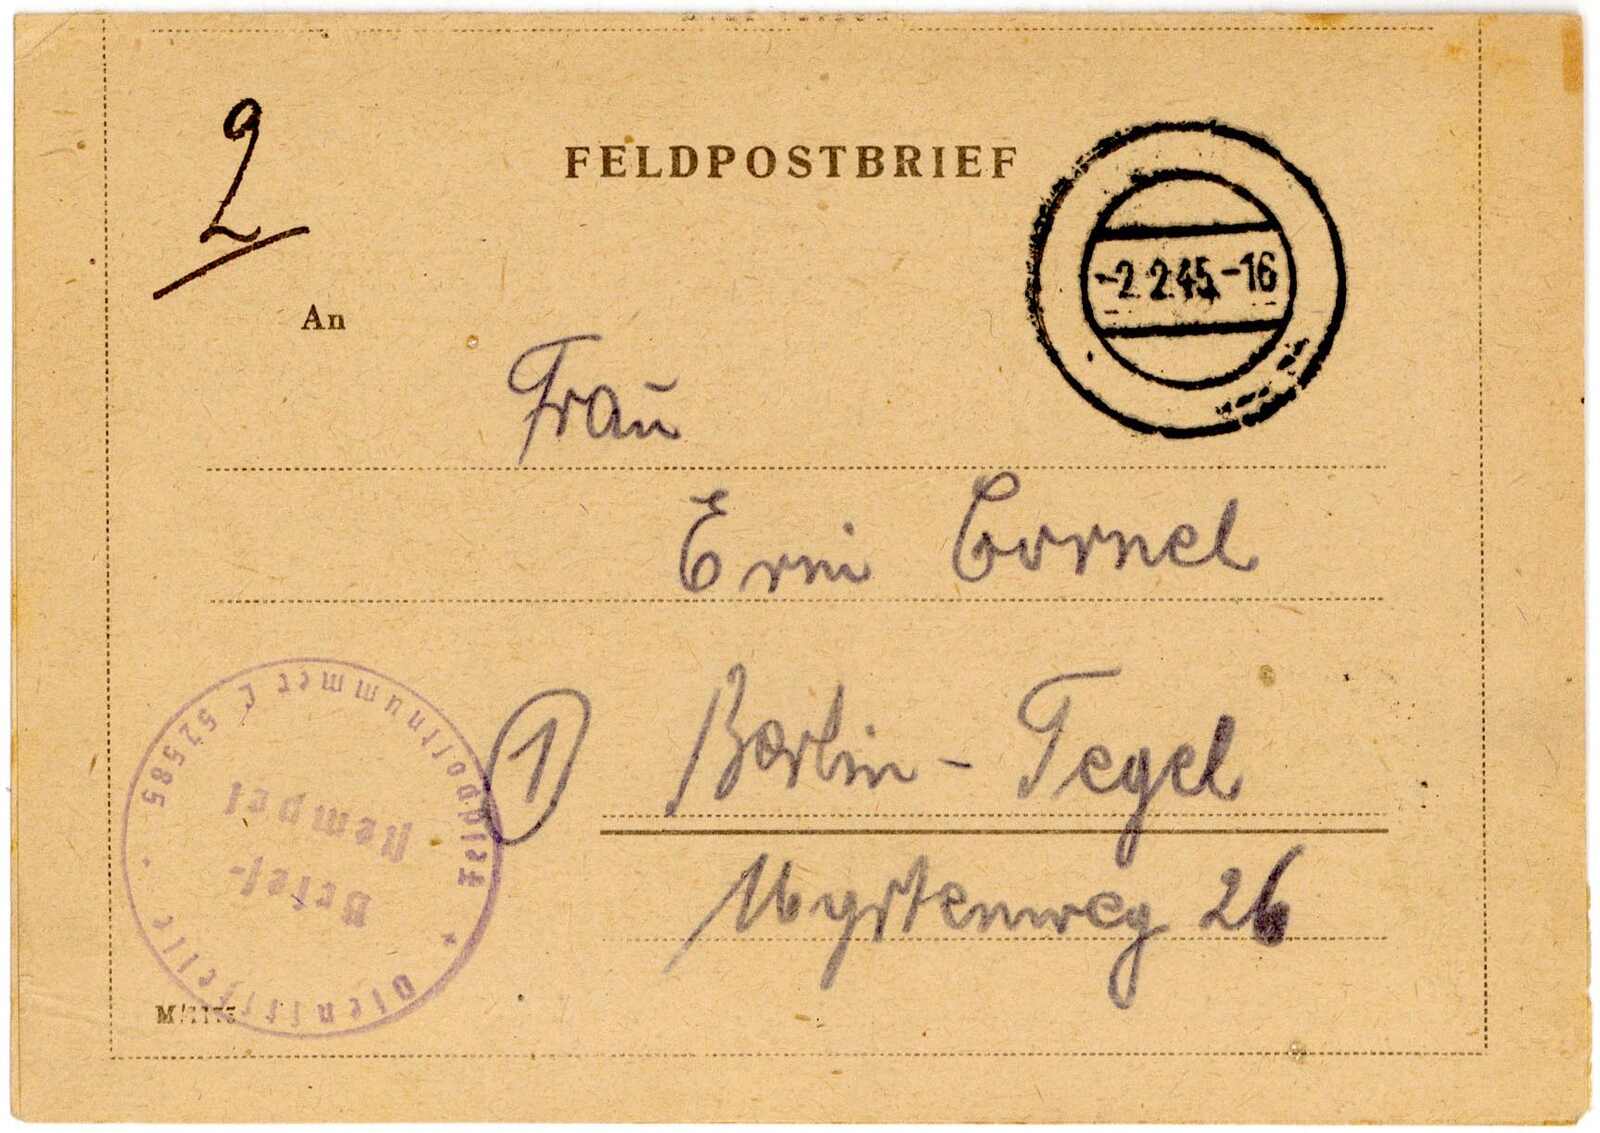 2
FELDPOSTBRIEF
-2.2.45.-16
An
Frau
Erni Cornel
1 Berlin-Tegel
Myrtenweg 26
Dienststelle
Feldpostnummer L 52585
Brief-
Stempel